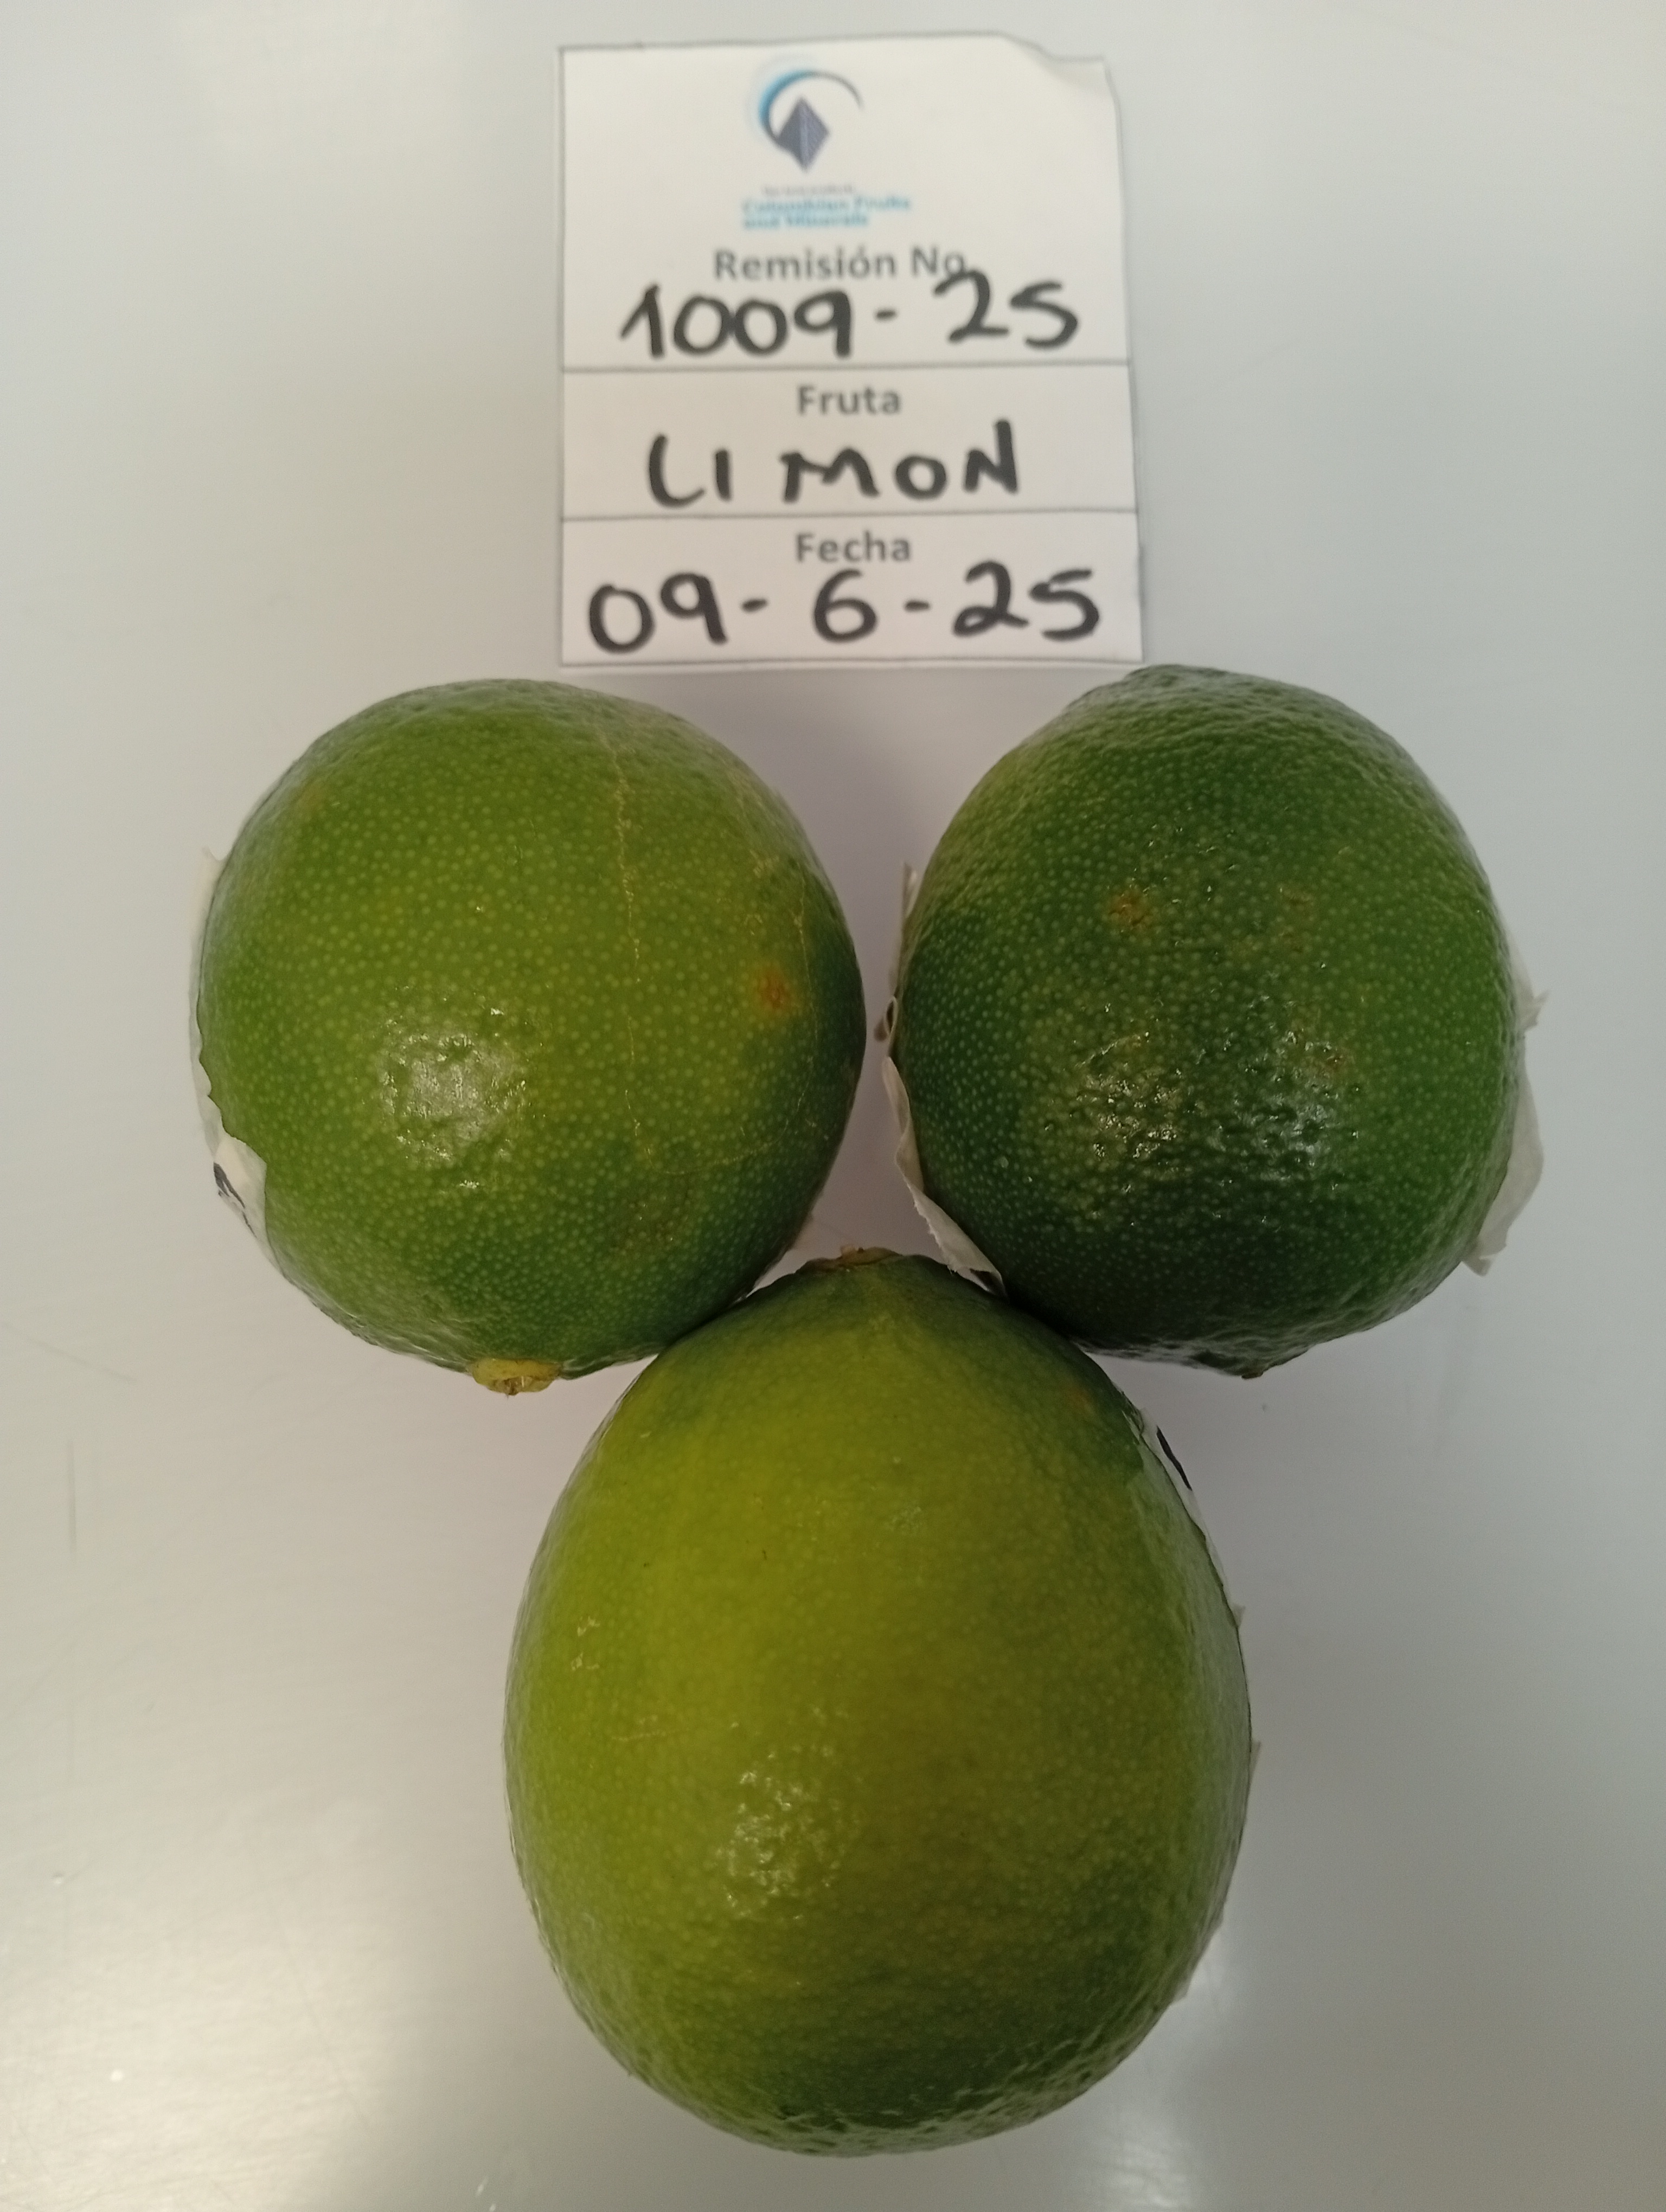 Colombian Fruits
and Minerals
Remisión No.
1009-25
Fruta
LIMON
Fecha
09-6-25